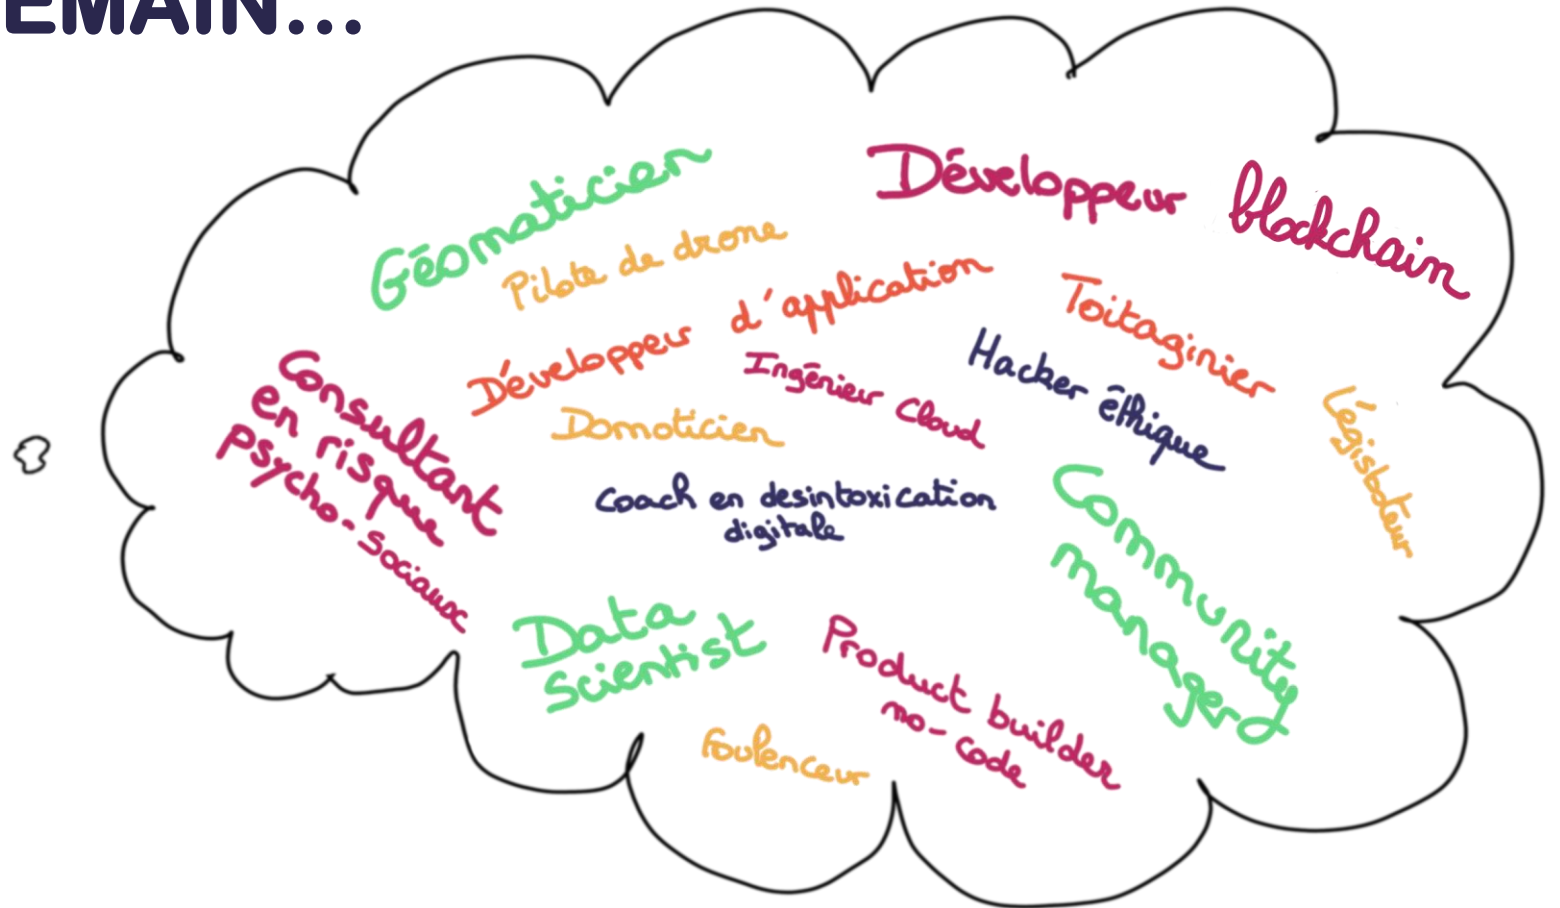 EMAIN...
Géomaticien
Développeur blockchain
Pilote de drone
Développeur d'application
Toitaginier
Ingénieur Cloud
Hacker éthique
Consultant
en risque
psycho-sociaux
Domoticien
Légisbateur
Coach en desintoxication
digitale
Community
manager
Data
scientist
Product builder
no-code
Foulenceur